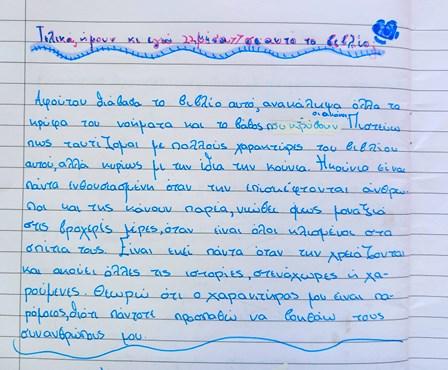 Τελικά, ήμουν κι εγώ σ' αυτό το βιβλίο.
Αφότου διάβασα το βιβλίο αυτό, ανακάλυψα όλα τα
κρύφα του νοήματα και το βάθος
Πιστεύω
πως ταυτίζομαι με πολλούς χαρακτήρες του βιβλίου
αυτού, αλλά κυρίως με την ίδια την κούνια. Η κούνια είναι
πάντα ενθουσιασμένη όταν την επισκέφτονται άνθρω-
ποι και της κάνουν παρέα, νιώθει όμως μοναξιά
στις βροχερές μέρες, όταν είναι όλοι κλεισμένοι στα
σπίτια τους. Είναι εκεί πάντα όταν την χρειάζονται
και ακούει όλες τις ιστορίες, στενάχωρες ή χα-
ρούμενες. Θεωρώ ότι ο χαρακτήρας μου είναι πα-
ρόμοιος, διότι πάντοτε προσπαθώ να βοηθάω τους
συνανθρώπους μου.